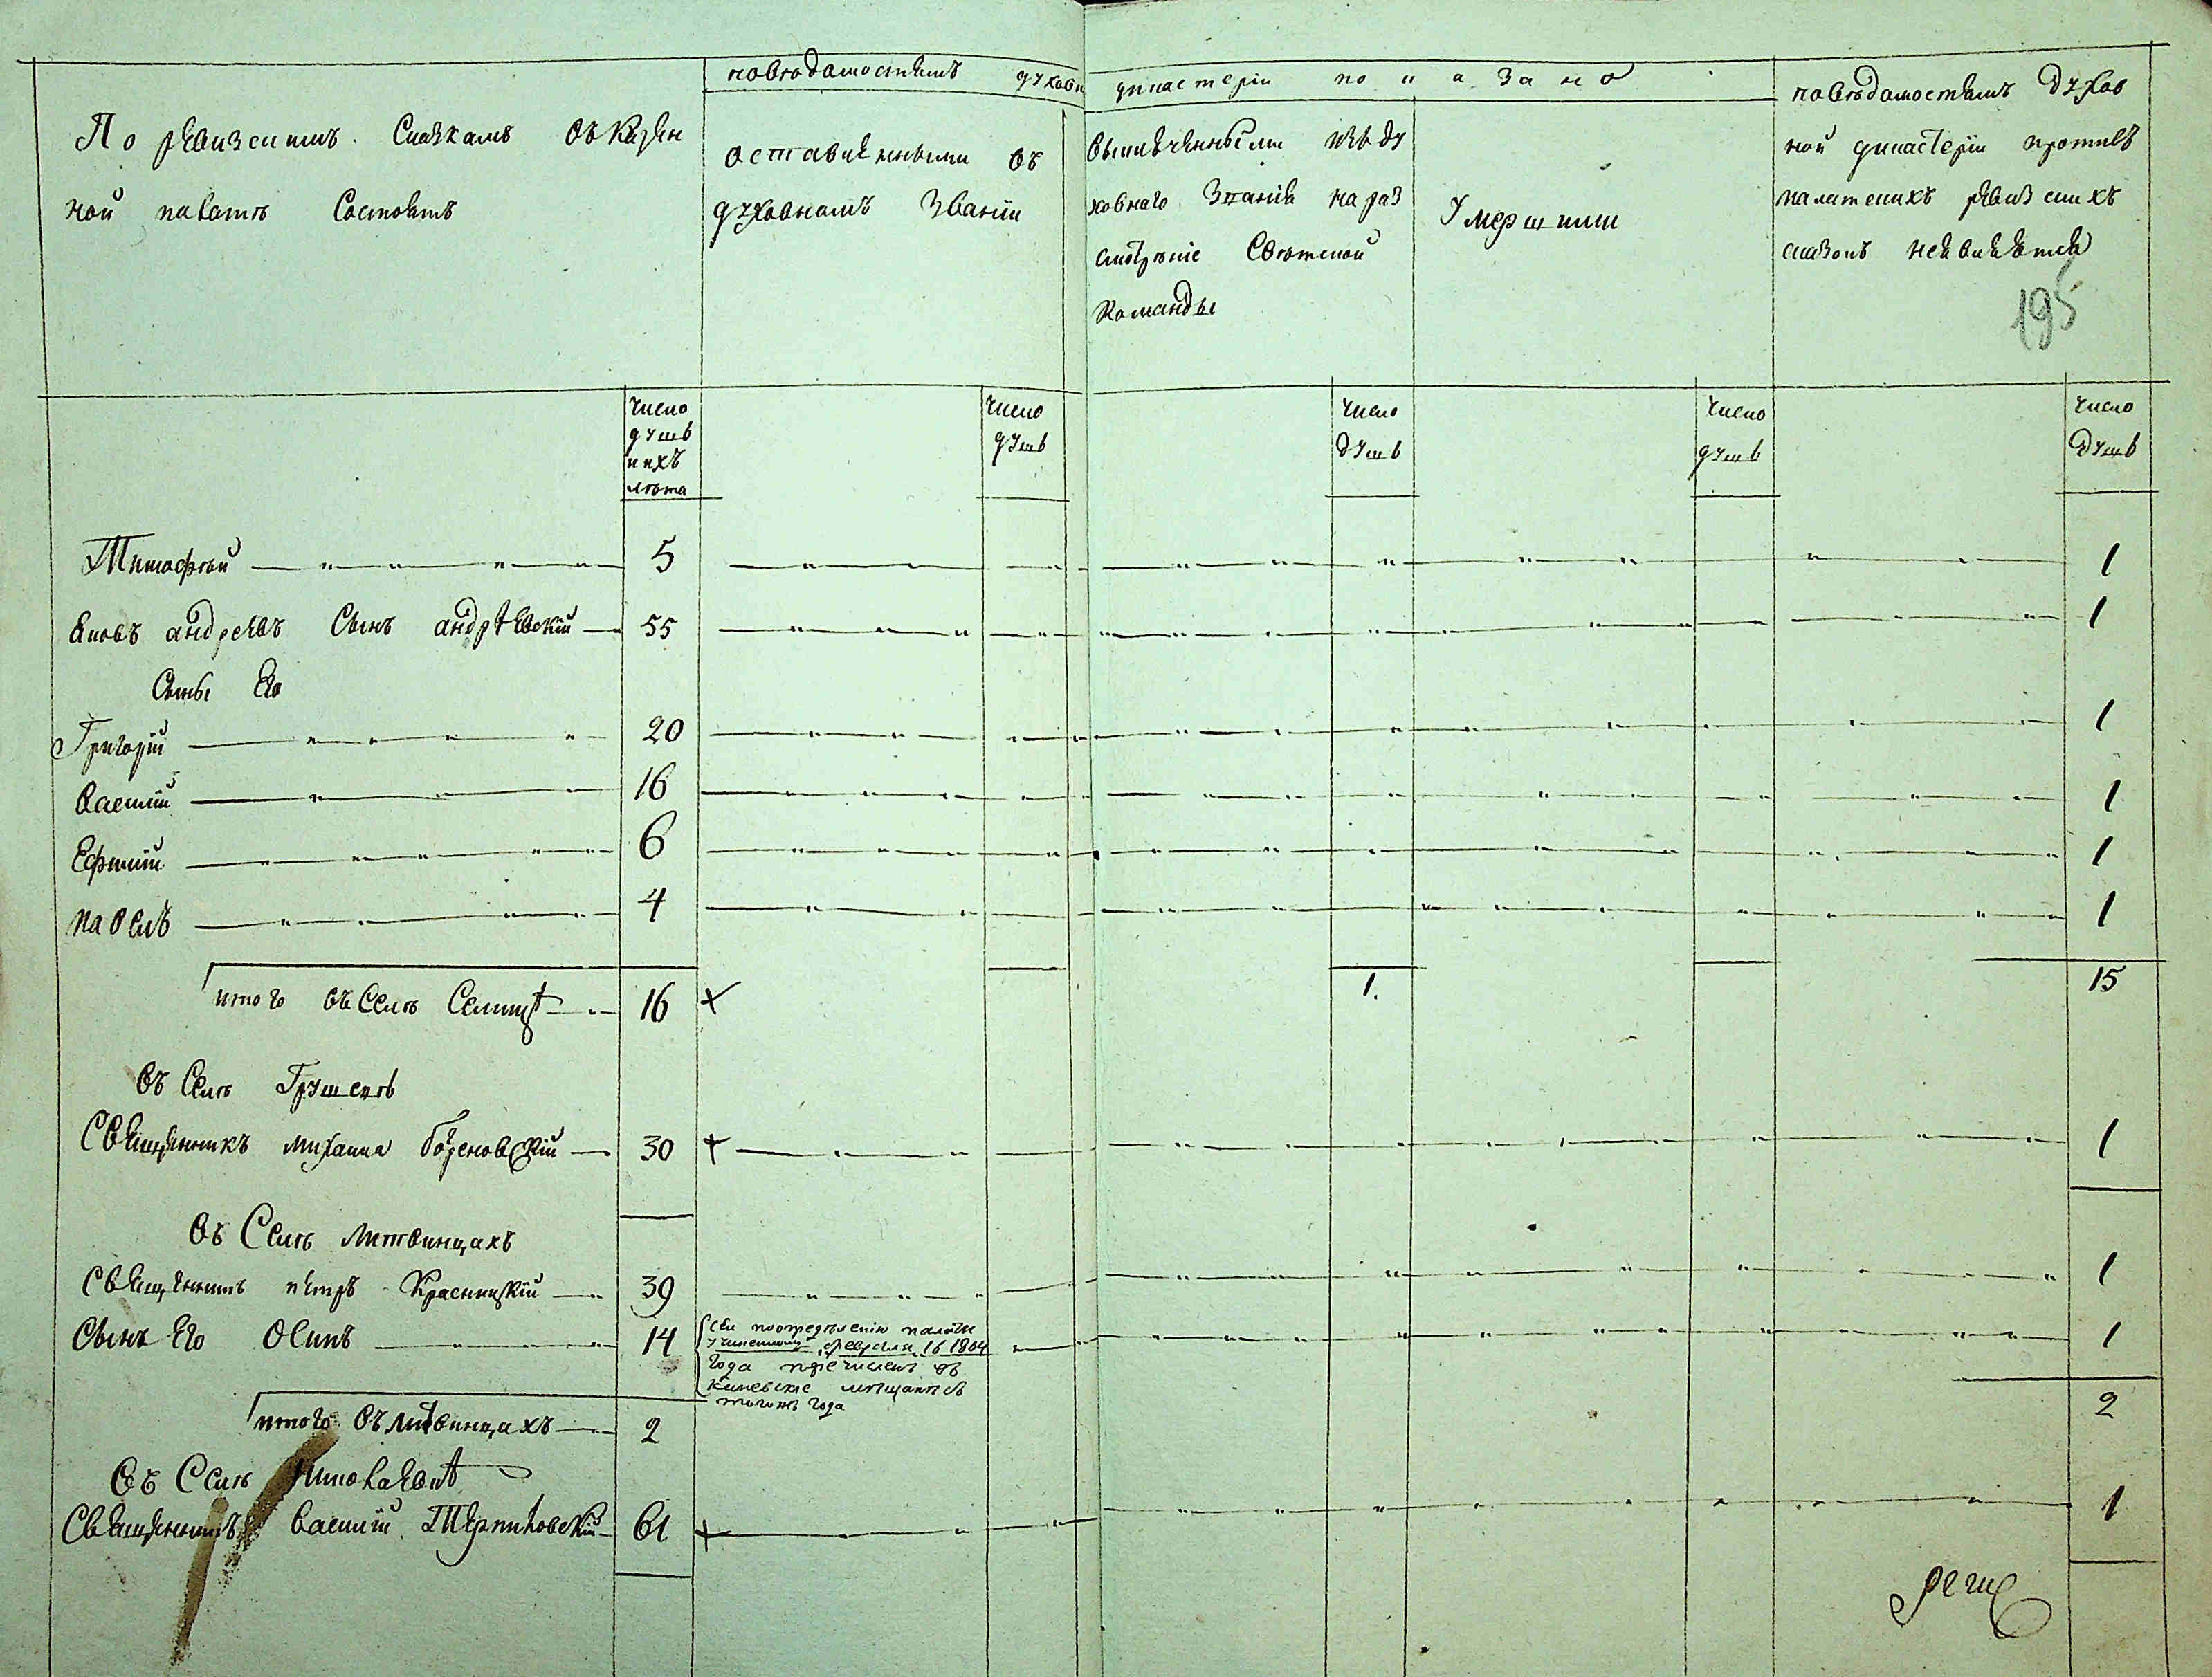 По ревизским Сказкамъ въ Казен
ной палатѣ Состоитъ
повѣдомостямъ духовн
дикастеріи показано
оставленными въ
духовномъ званіи
выключенными изъ ду
ховнаго Званія на раз
смотрѣніе Свѣтской
Команды
Умершими
повѣдомостямъ Духов
ной дикастеріи противъ
палатскихъ ревизскихъ
сказокъ неявляется
195
число душъ ихъ лѣта
число душъ
число душъ
число душъ
число душъ
Тимофѣй 5 1
Яковъ андреевъ Сынъ андрѣевскій 55 1
Сыны Его
Григорій 20 1
Василій 16 1
Ефимій 6 1
павелъ 4 1
итого въ Селѣ Селищѣ 16 + 1. 15
въ Селѣ Грушевѣ
Священникъ михаила 30 + 1
въ Селѣ литвинцахъ
Священникъ петръ Красницкій 39 1
Сынъ Его Осипъ 14 1
Сей поопредѣленію палаты
учиненному февраля 16 1804
Года причисленъ въ
Киевские мещане съ
тогожъ года
итого въ литвинцахъ 2 2
въ Селѣ
Священникъ Василій Терпиловскій 61 + 1